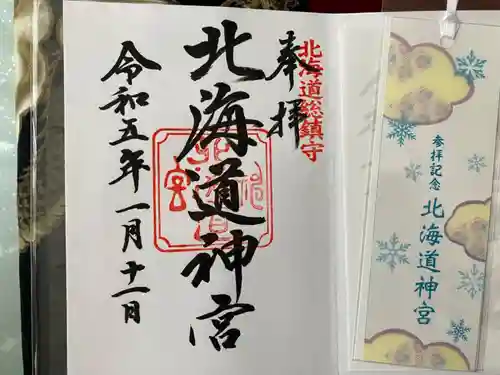 奉拝
北海道総鎮守
北海道神宮
令和五年一月十一日
参拝記念
北海道神宮